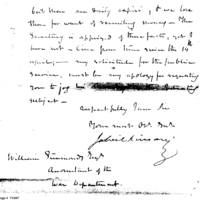 but there are daily expiri[...], & we lose
them for want of recruiting money - The
Secretary is apprised of these facts, yet I
have not a line from him since the 14
- my solicitude for the public
service, must be my apology for requesting
you to
subject -
respectfully Your Sir
Your most Obt. Servt.
William Simmons Esqr
Accountant of the
War Department.